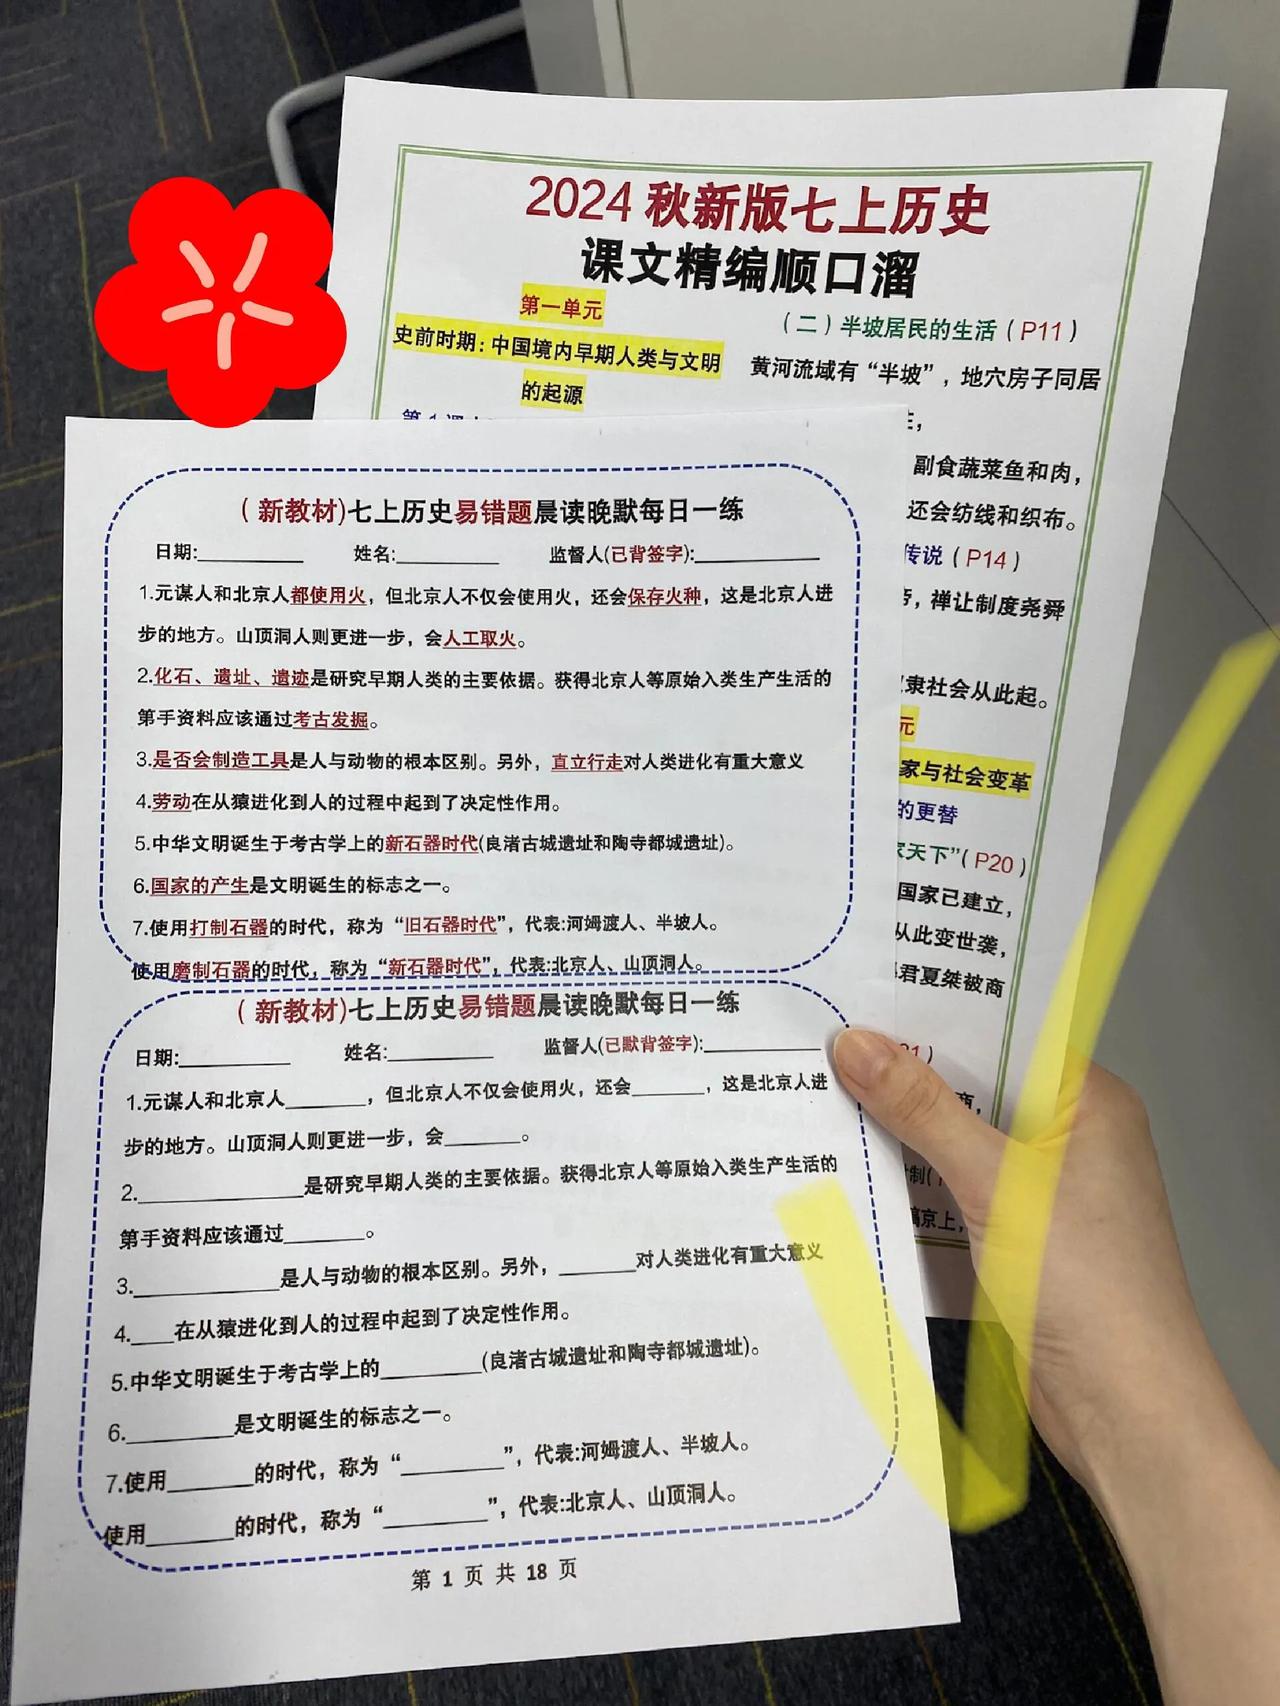 2024 秋新版七上历史
课文精编顺口溜
第一单元
史前时期：中国境内早期人类与文明
的起源
（二）半坡居民的生活（P11）
黄河流域有“半坡”，地穴房子同居
副食蔬菜鱼和肉，
还会纺线和织布。
传说（P14）
，禅让制度尧舜
隶社会从此起。
元
家与社会变革
的更替
家天下”（P20）
国家已建立，
从此变世袭，
君夏桀被商
商，
制(
镐京上，
（新教材)七上历史易错题晨读晚默每日一练
日期:__________ 姓名:__________ 监督人(已背签字):____________
1.元谋人和北京人都使用火，但北京人不仅会使用火，还会保存火种，这是北京人进
步的地方。山顶洞人则更进一步，会人工取火。
2.化石、遗址、遗迹是研究早期人类的主要依据。获得北京人等原始入类生产生活的
第手资料应该通过考古发掘。
3.是否会制造工具是人与动物的根本区别。另外，直立行走对人类进化有重大意义
4.劳动在从猿进化到人的过程中起到了决定性作用。
5.中华文明诞生于考古学上的新石器时代(良渚古城遗址和陶寺都城遗址)。
6.国家的产生是文明诞生的标志之一。
7.使用打制石器的时代，称为“旧石器时代”，代表:河姆渡人、半坡人。
使用磨制石器的时代，称为“新石器时代”，代表:北京人、山顶洞人。
（新教材)七上历史易错题晨读晚默每日一练
日期:__________ 姓名:__________ 监督人(已默背签字):___________
1.元谋人和北京人_______，但北京人不仅会使用火，还会_______，这是北京人进
步的地方。山顶洞人则更进一步，会_______。
2.______________是研究早期人类的主要依据。获得北京人等原始入类生产生活的
第手资料应该通过_______。
3.____________是人与动物的根本区别。另外，_______对人类进化有重大意义
4.____在从猿进化到人的过程中起到了决定性作用。
5.中华文明诞生于考古学上的_________(良渚古城遗址和陶寺都城遗址)。
6._________是文明诞生的标志之一。
7.使用_______的时代，称为“_________”，代表:河姆渡人、半坡人。
使用_______的时代，称为“_________”，代表:北京人、山顶洞人。
第 1 页 共 18 页